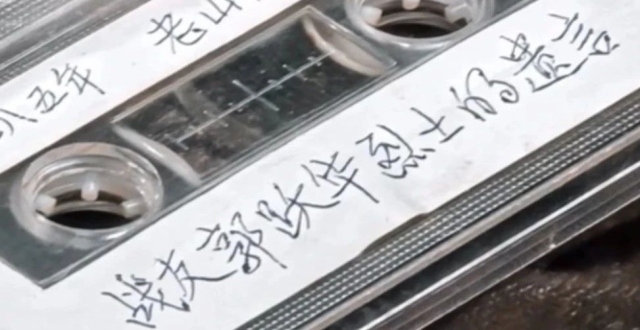 八五年 老山
战友郭跃华烈士的遗言